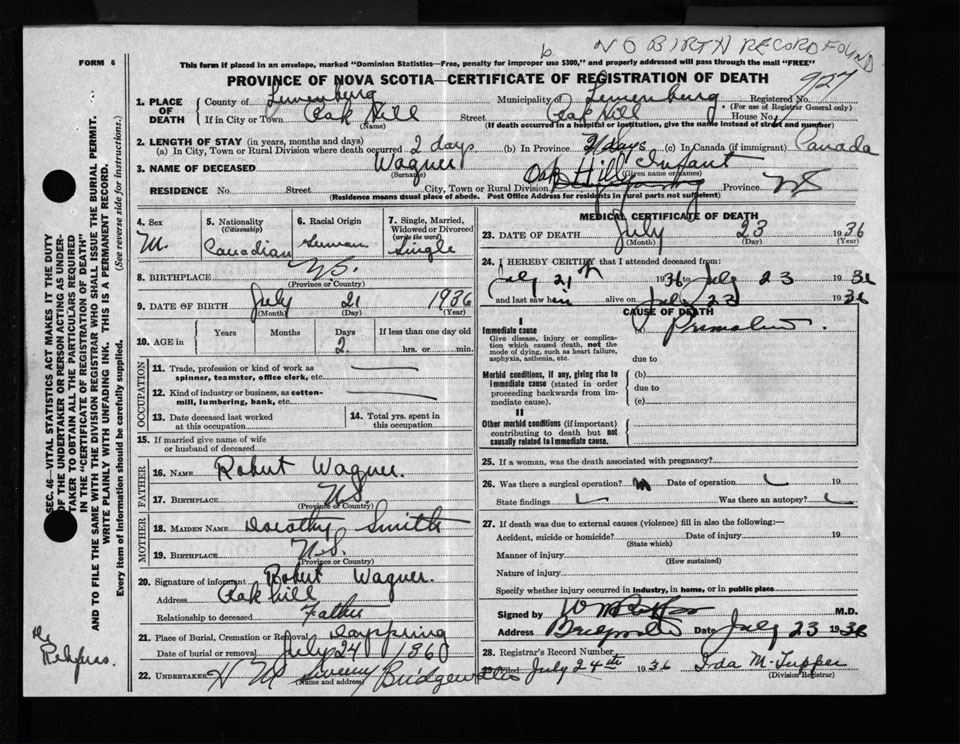 NO BIRTH RECORD FOUND
FORM 6
This form if placed in an envelope, marked "Dominion Statistics—Free, penalty for improper use $300," and properly addressed will pass through the mail "FREE"
PROVINCE OF NOVA SCOTIA—CERTIFICATE OF REGISTRATION OF DEATH
927
1. PLACE OF DEATH
County of Lunenburg Municipality of Lunenburg Registered No.
(For use of Registrar General only)
If in City or Town Oak Hill Street Oak Hill House No.
(Name) (If death occurred in a hospital or institution, give the name instead of street and number)
2. LENGTH OF STAY (in years, months and days)
(a) In City, Town or Rural Division where death occurred 2 days (b) In Province 2 days (c) In Canada (if immigrant) Canada
3. NAME OF DECEASED Wagner Infant
(Surname) (Given name or names)
RESIDENCE No. Street Oak Hill City, Town or Rural Division Province NS
(Residence means usual place of abode. Post Office Address for residents in rural parts not sufficient)
4. Sex M.
5. Nationality (Citizenship) Canadian
6. Racial Origin German
7. Single, Married, Widowed or Divorced (write the word) Single
8. BIRTHPLACE N.S.
(Province or Country)
9. DATE OF BIRTH July 21 1936
(Month) (Day) (Year)
10. AGE in Years Months Days If less than one day old
2. hrs. or min.
OCCUPATION
11. Trade, profession or kind of work as spinner, teamster, office clerk, etc.
12. Kind of industry or business, as cotton-mill, lumbering, bank, etc.
13. Date deceased last worked at this occupation
14. Total yrs. spent in this occupation
15. If married give name of wife or husband of deceased
FATHER
16. NAME Robert Wagner.
17. BIRTHPLACE N.S.
(Province or Country)
MOTHER
18. MAIDEN NAME Dorothy Smith
19. BIRTHPLACE N.S.
(Province or Country)
20. Signature of informant Robert Wagner.
Address Oak hill
Relationship to deceased Father
21. Place of Burial, Cremation or Removal Dayspring
Date of burial or removal July 24 1936
22. UNDERTAKER H M Sweeny Bridgewater
(Name and address)
MEDICAL CERTIFICATE OF DEATH
23. DATE OF DEATH July 23 1936
(Month) (Day) (Year)
24. I HEREBY CERTIFY that I attended deceased from:
July 21th 1936 to July 23 1936
and last saw him alive on July 23 1936
CAUSE OF DEATH
I
Immediate cause
Give disease, injury or complication which caused death, not the mode of dying, such as heart failure, asphyxia, asthenia, etc.
(a)
due to
Morbid conditions, if any, giving rise to immediate cause (stated in order proceeding backwards from immediate cause).
(b)
due to
(c)
II
Other morbid conditions (if important) contributing to death but not causally related to immediate cause.
25. If a woman, was the death associated with pregnancy?
26. Was there a surgical operation? Date of operation 19
State findings Was there an autopsy?
27. If death was due to external causes (violence) fill in also the following:—
Accident, suicide or homicide? Date of injury 19
(State which)
Manner of injury
(How sustained)
Nature of injury
Specify whether injury occurred in industry, in home, or in public place
Signed by M.D.
Address Bridgewater Date July 23 1936
28. Registrar's Record Number
29. Filed July 24th 1936 Ida M. Tupper
(Division Registrar)
SEC. 46—VITAL STATISTICS ACT MAKES IT THE DUTY
OF THE UNDERTAKER OR PERSON ACTING AS UNDERTAKER TO OBTAIN ALL THE PARTICULARS REQUIRED
IN THE "CERTIFICATE OF REGISTRATION OF DEATH"
AND TO FILE THE SAME WITH THE DIVISION REGISTRAR WHO SHALL ISSUE THE BURIAL PERMIT.
WRITE PLAINLY WITH UNFADING INK. THIS IS A PERMANENT RECORD.
Every item of Information should be carefully supplied. (See reverse side for instructions.)